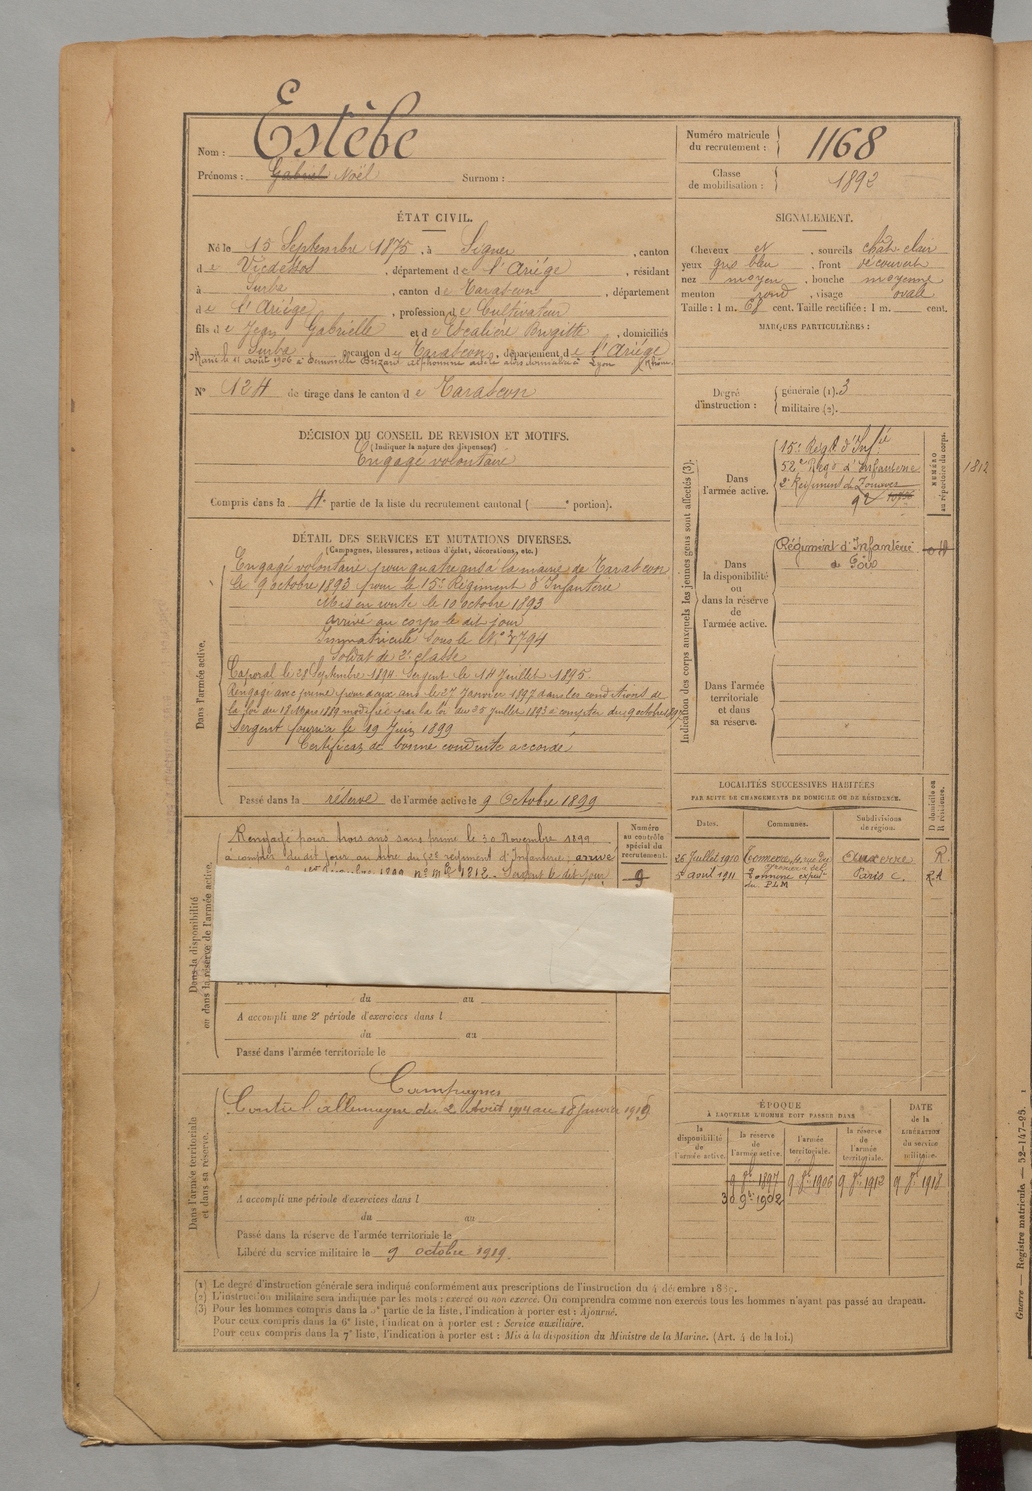 Nom : Estèbe
Prénoms : Gabriel Noël Surnom :
Numéro matricule
du recrutement : 1168
Classe
de mobilisation : 1892
ÉTAT CIVIL.
Né le 15 Septembre 1875, à Siguer, canton
de Vicdessos, département de l'Ariège, résidant
à Surba, canton de Tarascon, département
de l'Ariège, profession de Cultivateur
fils de Jean Gabrielle et de Escalière Brigitte, domiciliés
à Surba, canton de Tarascon, département de l'Ariège
Marié le 11 août 1906 à Demoiselle Buzare domiciliée à Lyon (Rhône)
N° 124 de tirage dans le canton de Tarascon
SIGNALEMENT.
Cheveux et, sourcils chât clair
yeux gris bleu, front découvert
nez moyen, bouche moyenne
menton rond, visage ovale
Taille : 1 m. 68 cent. Taille rectifiée : 1 m. cent.
MARQUES PARTICULIÈRES :
Degré
d'instruction :
générale (1). 3
militaire (2).
DÉCISION DU CONSEIL DE REVISION ET MOTIFS.
(Indiquer la nature des dispenses.)
Engagé volontaire
Compris dans la 4e partie de la liste du recrutement cantonal ( e portion).
DÉTAIL DES SERVICES ET MUTATIONS DIVERSES.
(Campagnes, blessures, actions d'éclat, décorations, etc.)
Dans l'armée active.
Engagé volontaire pour quatre ans à la mairie de Tarascon
le 9 octobre 1893 pour le 15e Régiment d'Infanterie
Mis en route le 10 octobre 1893
Arrivé au corps le dit jour
Immatriculé sous le N° 3794
Soldat de 2e classe
Caporal le 28 Septembre 1894 Sergent le 14 Juillet 1895
Rengagé avec prime pour deux ans le 27 Janvier 1897 dans les conditions de
la loi du 18 Mars 1889 modifiée par la loi du 25 Juillet 1893 à compter du 9 octobre 1897
Sergent fourrier le 19 Juin 1899
Certificat de bonne conduite accordé
Passé dans la réserve de l'armée active le 9 Octobre 1899
Indication des corps auxquels les jeunes gens sont affectés (3).
Dans
l'armée active.
15e Régt d'Infie
52e Rég d'Infanterie
2e Régiment de Zouaves
NUMÉRO
au répertoire du corps.
1812
Dans
la disponibilité
ou
dans la réserve
de
l'armée active.
Régiment d'Infanterie
de Foix
Dans l'armée
territoriale
et dans
sa réserve.
Dans la disponibilité
ou dans la réserve de l'armée active.
Rengagé pour trois ans sans prime le 30 Novembre 1899
à compter du dit jour, au titre du 52e régiment d'Infanterie ; arrivé
1899 n° mle 1812. Sergent le dit jour
Numéro
au contrôle
spécial du
recrutement.
9
du au
A accompli une 2e période d'exercices dans l
du au
Passé dans l'armée territoriale le
LOCALITÉS SUCCESSIVES HABITÉES
PAR SUITE DE CHANGEMENTS DE DOMICILE OU DE RÉSIDENCE.
Dates. Communes. Subdivisions
de région.
D domicile ou
R résidence.
25 Juillet 1910 Tonnerre, rue Auxerre R.
5 avril 1911 du PLM Paris C. R
Dans l'armée territoriale
et dans sa réserve.
Campagnes
Contre l'allemagne du 2 Août 1914 au 18 Janvier 1919
A accompli une période d'exercices dans l
du au
Passé dans la réserve de l'armée territoriale le
Libéré du service militaire le 9 octobre 1919.
ÉPOQUE
À LAQUELLE L'HOMME DOIT PASSER DANS
la
disponibilité
de
l'armée active.
la réserve
de
l'armée active.
l'armée
territoriale.
la réserve
de
l'armée
territoriale.
DATE
de la
LIBÉRATION
du service
militaire.
9 8bre 1897 9 8bre 1906 9 8bre 1912 9 8bre 1918
30 9bre 1902
(1) Le degré d'instruction générale sera indiqué conformément aux prescriptions de l'instruction du 4 décembre
(2) L'instruction militaire sera indiquée par les mots : exercé ou non exercé. On comprendra comme non exercés tous les hommes n'ayant pas passé au drapeau.
(3) Pour les hommes compris dans la 5e partie de la liste, l'indication à porter est : Ajourné.
Pour ceux compris dans la 6e liste, l'indication à porter est : Service auxiliaire.
Pour ceux compris dans la 7e liste, l'indication à porter est : Mis à la disposition du Ministre de la Marine. (Art. 4 de la loi.)
Guerre — Registre matricule. — 52-147-98.